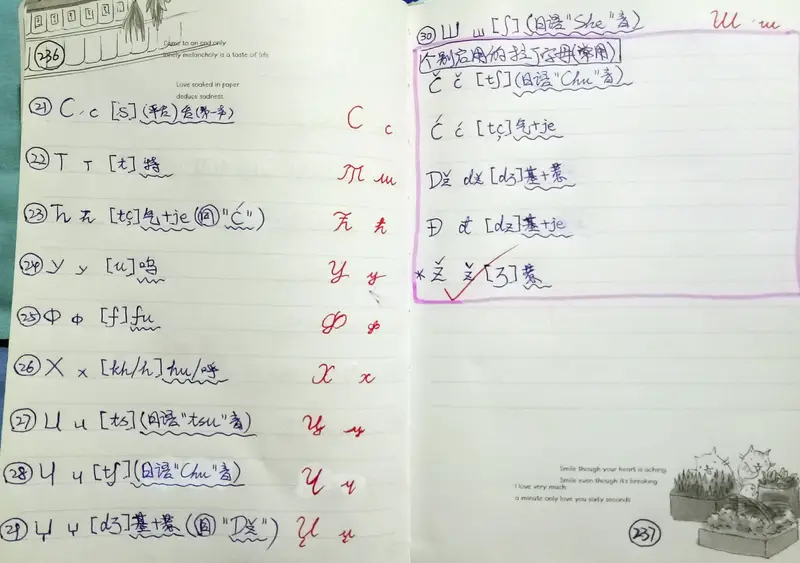 236
Come to an end only
lonely melancholy is a taste of life
Love soaked in paper
deduce sadness
21 С с [s] (平舌)舍(第一声) С с
22 Т т [t] 特 Т т
23 Ћ ћ [tɕ] 气+je (同"Ć") Ћ ћ
24 У у [u] 呜 У у
25 Ф ф [f] fu Ф ф
26 Х х [kh/h] hu/呼 Х х
27 Ц ц [ts] (日语"tsu"音) Ц ц
28 Ч ч [tʃ] (日语"Chu"音) Ч ч
29 Џ џ [dʒ] 基+惹 (同"Dž") Џ џ
30 Ш ш [ʃ] (日语"She"音) Ш ш
个别启用的拉丁字母(常用)
Č č [tʃ] (日语"Chu"音)
Ć ć [tɕ] 气+je
Dž dž [dʒ] 基+惹
Đ đ [dz] 基+je
* Ž ž [ʒ] 惹
Smile though your heart is aching
Smile even though it's breaking
I love very much
a minute only love you sixty seconds
237